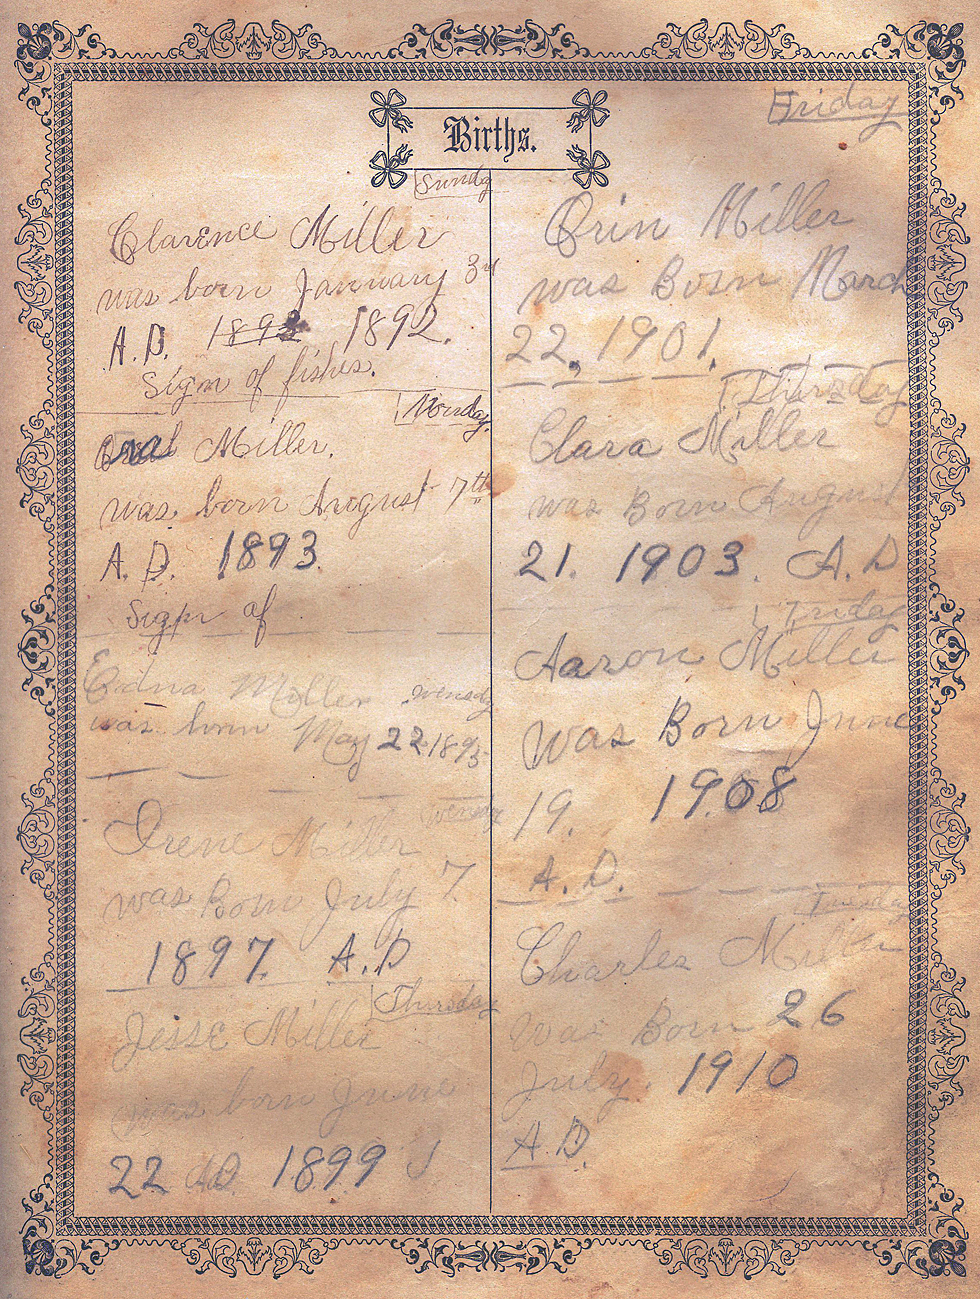 Births.
Sundy
Clarence Miller
was born January 3rd
A.D. 1893 1892.
Sign of fishes.
Monday
Oral Miller.
was born August 7th
A.D. 1893
Sign of
Edna Miller Wensdy
was born May 22 1895
Wensdy
Irene Miller
was Born July 7.
1897. A.D
Thursday
Jesse Miller
was born June
22 AD 1899
Friday
Orin Miller
was Born March
22, 1901.
Thursday
Clara Miller
was Born August
21. 1903. A.D
Friday
Aaron Miller
Was Born June
19. 1908
A.D.
Charles Miller
Was Born 26
July. 1910
A.D.